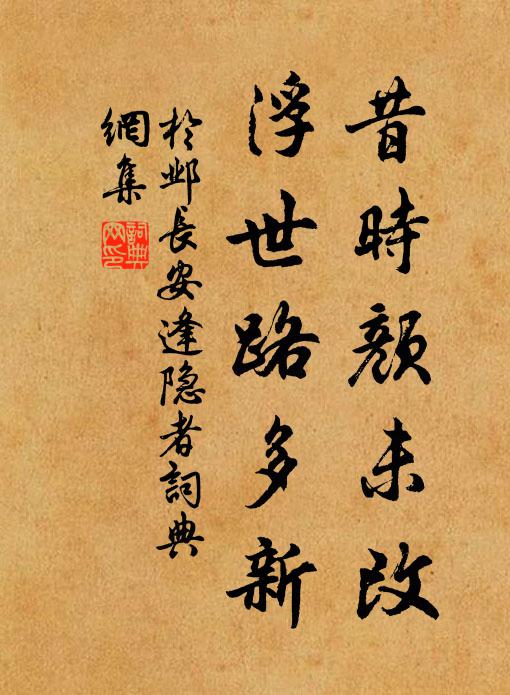 昔時顏未改
浮世路多新
於邺長安逢隐者詞典
網集
詞典
网印